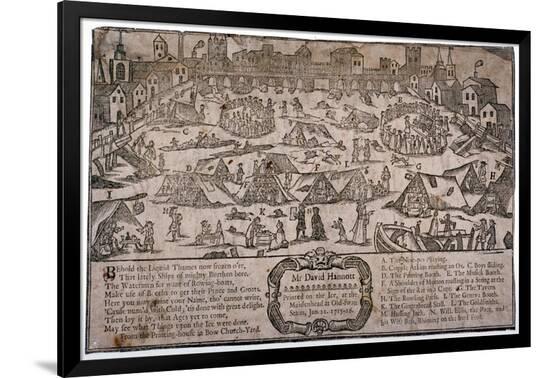 Behold the Liquid Thames now frozen o're,
That lately Ships of mighty Burthen bore.
The Watermen for want of Rowing-boats,
Make use of Booths to get their Pence and Groats.
Here you may see your Name, tho' cannot write,
'Cause numb'd with Cold, 'tis done with great delight.
Then lay it by, that Ages yet to come,
May see what Things upon the Ice were done.
From the Printing-house in Bow Church-Yard.
Mr David Hannott
Printed on the Ice, at the
Maidenhead at Old-Swan
Stairs, Jan.
A. playing.
B. roasting an Ox. C. Boys sliding.
D. Printing Booth. E. The Musick Booth.
F. A Shoulder of Mutton roasting in a String at the
Sign of the G. The Tavern
H. The Bowling I. The Geneva Booth.
K. The Gingerbread Stall. L. The Goldsmiths.
N. Will. Ellis, the Poet, and
his Wife
B
C
D
E
F
G
H
I
K